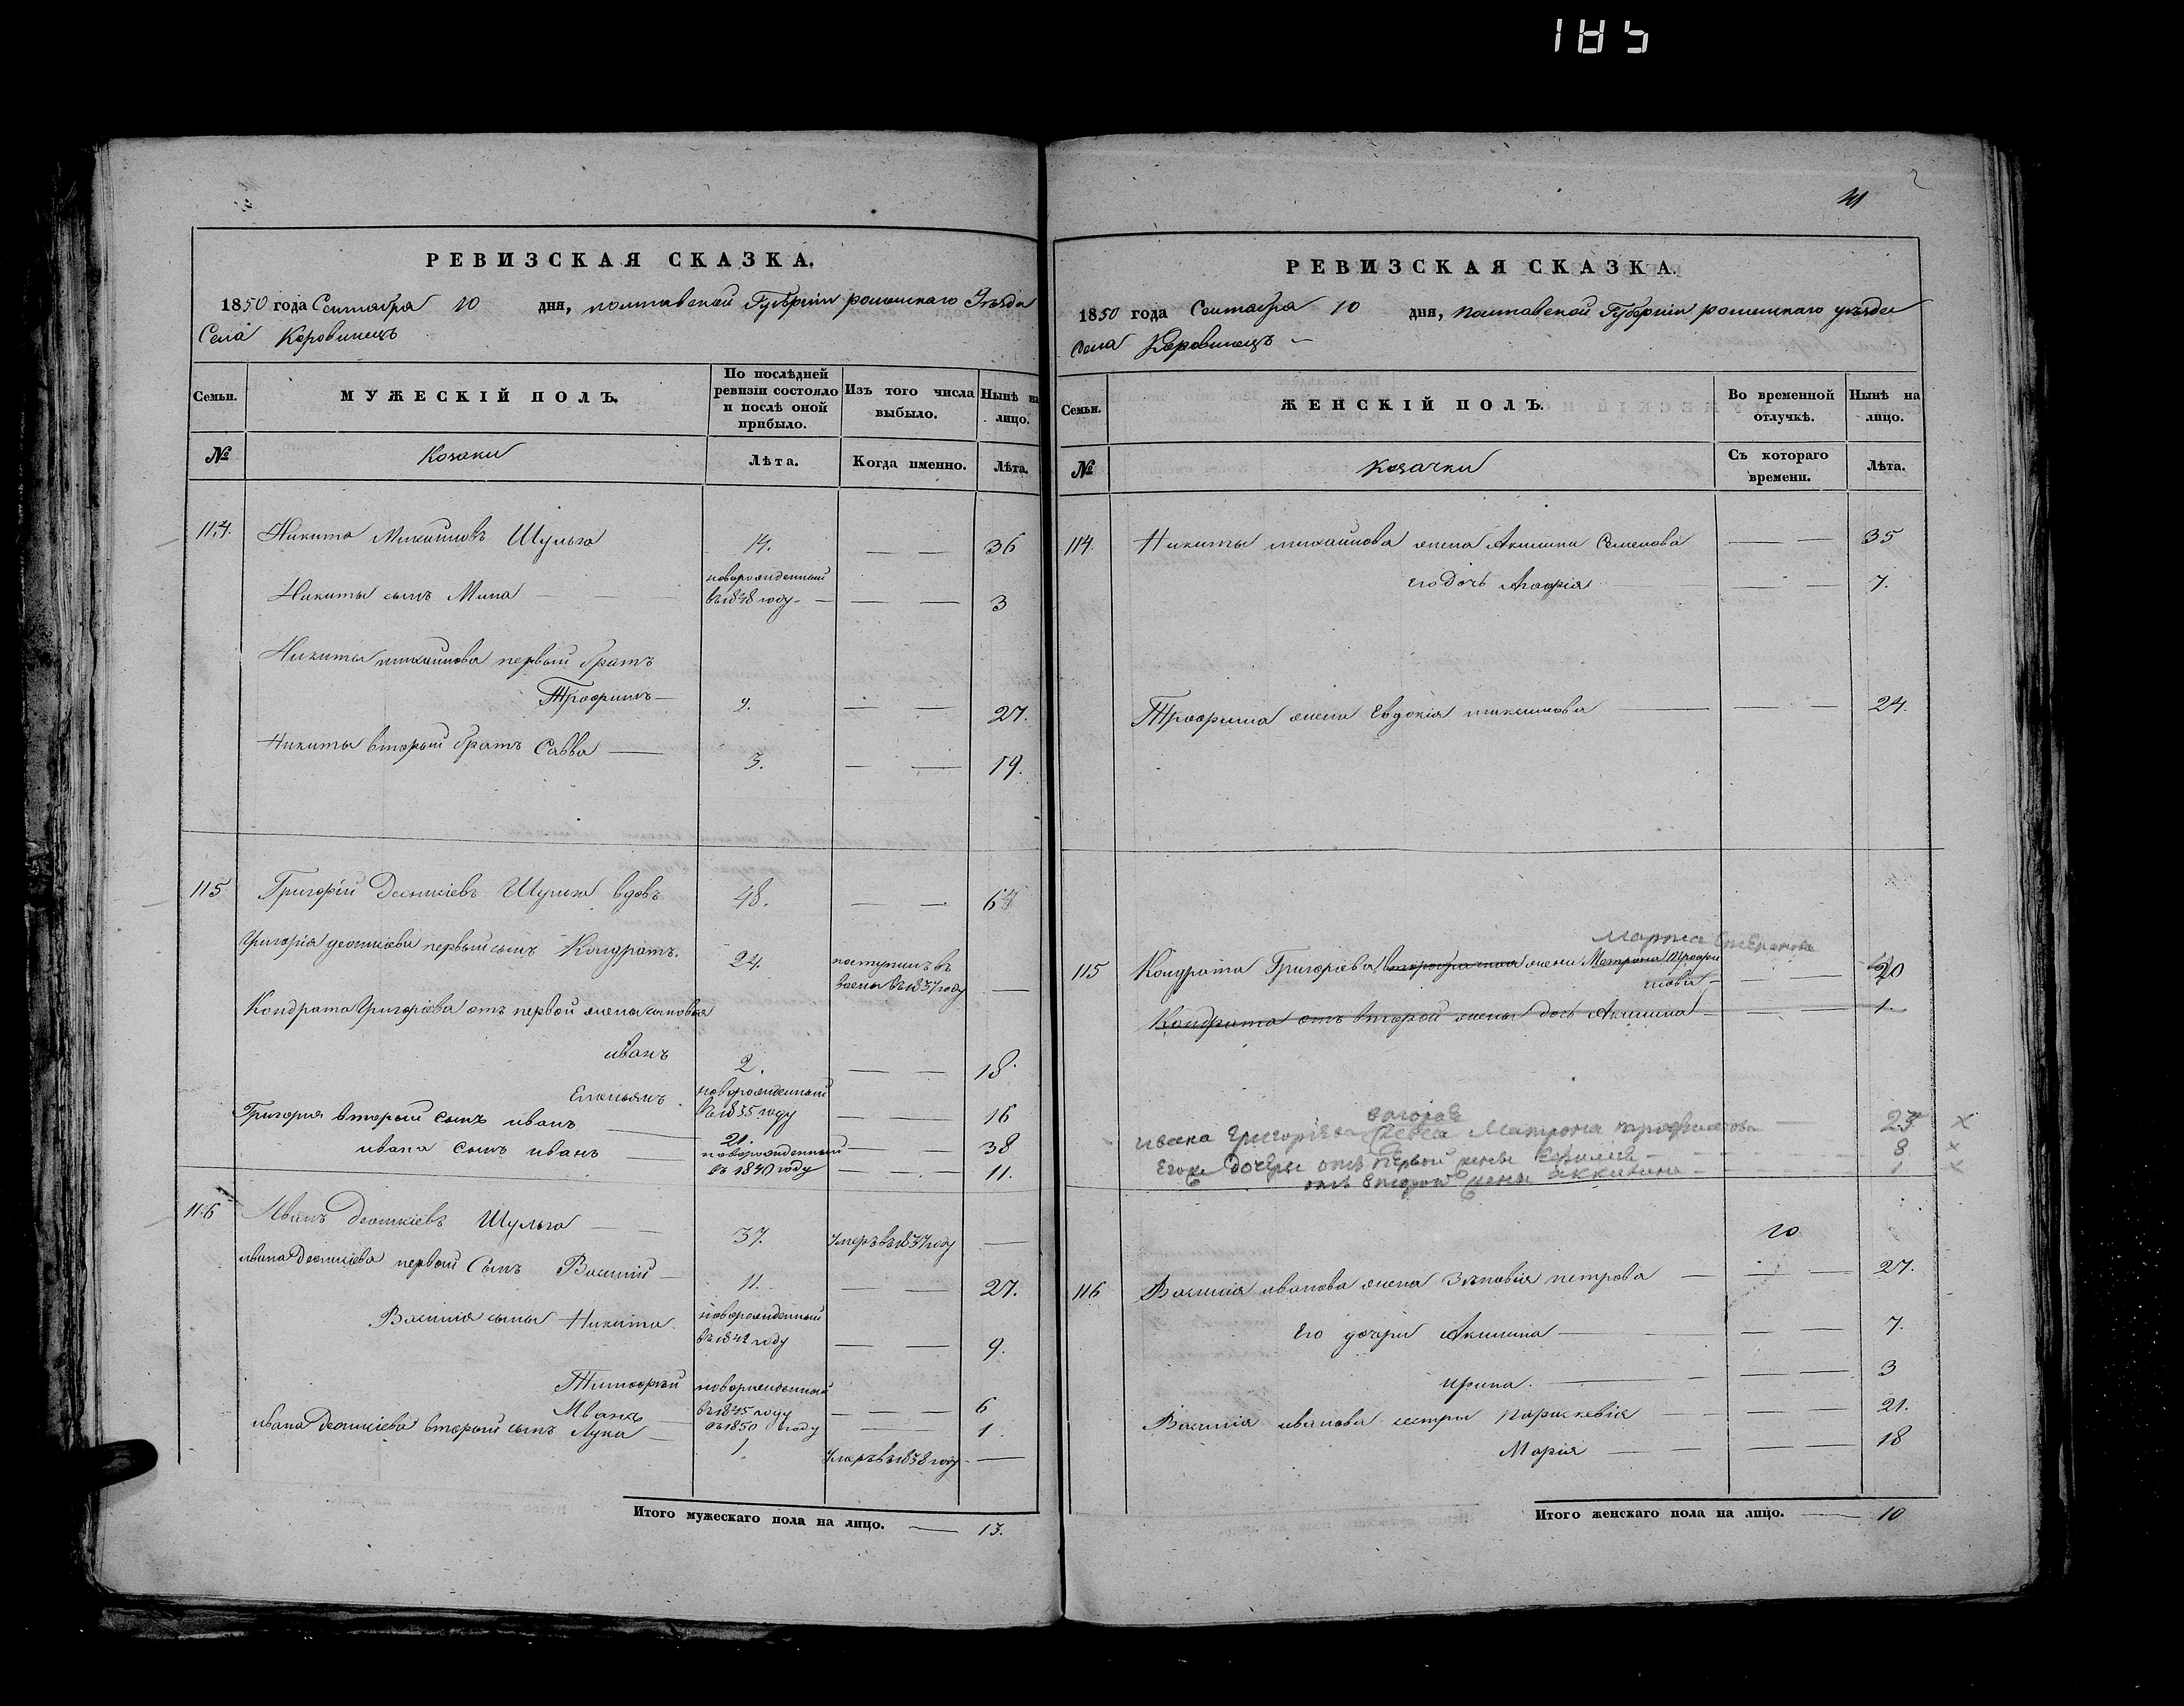 185
РЕВИЗСКАЯ СКАЗКА.
1850 года Сентября 10 дня, полтавской Губерніи роменскаго Уѣзда
Села Коровинецъ
Семьи. МУЖЕСКІЙ ПОЛЪ. По послѣдней ревизіи состояло и послѣ оной прибыло. Изъ того числа выбыло. Нынѣ на лицо.
№ Козаки Лѣта. Когда именно. Лѣта.
114. Никита Михайловъ Шульга 14. — — 36
Никиты сынъ Мина — новорожденный въ 1848 году — — — 3
Никиты михайлова первый братъ
Трофимъ — 9. — — 27.
Никиты вторый братъ Савва — 3. — — 19.
115 Григорій Деомкіевъ Шульга вдовъ 48. — — 64
Григорія деомкіева первый сынъ Кондратъ. 24. поступилъ въ
въ 1837 году —
Кондрата Григоріева отъ первой жены сыновья
иванъ 2. — — 18.
Емельянъ новорожденный въ 1835 году — — 16
Григорія вторый сынъ иванъ — 21. — — 38
ивана сынъ иванъ — новорожденный въ 1840 году — 11.
116 Иванъ деомкіевъ Шульга — — 37. умеръ въ 1837 году —
ивана Деомкіева первый Сынъ Василій — 11. — — 27.
Василія сыны Никита новорожденный въ 1842 году — — 9.
Тимофѣй новорожденный въ 1845 году — — 6
Иванъ — въ 1850 году — 1
ивана Деомкіева вторый сынъ Лука — 1 умеръ въ 1838 году — —
Итого мужескаго пола на лицо. — 13.
41
РЕВИЗСКАЯ СКАЗКА.
1850 года Сентября 10 дня, Полтавской Губерніи роменскаго уѣзда
Села Коровинецъ —
Семьи. ЖЕНСКІЙ ПОЛЪ. Во временной отлучкѣ. Нынѣ на лицо.
№ Козачки Съ котораго времени. Лѣта.
114. Никиты михайлова жена Акилина Семенова — — 35
Его дочь Агафія — — 7.
Трофима жена Евдокія — — — 24.
Марфа Степанова
115 Кондрата Григоріева жена Матрона Профи
мова — — 20
Кондрата отъ второй жены дочь Акилина — — 1
вторая
ивана григоріева жена Матрона — 23 ×
Егоже дочери отъ первой жены — 8 ×
отъ второй жены — 1 ×
10
116 Василія иванова жена Зѣновія петрова — — 27.
Его дочери Акилина — — — 7.
ирина. — — — 3
Василія иванова сестры параскевія — — — 21.
Марія — — — 18
Итого женскаго пола на лицо. — 10